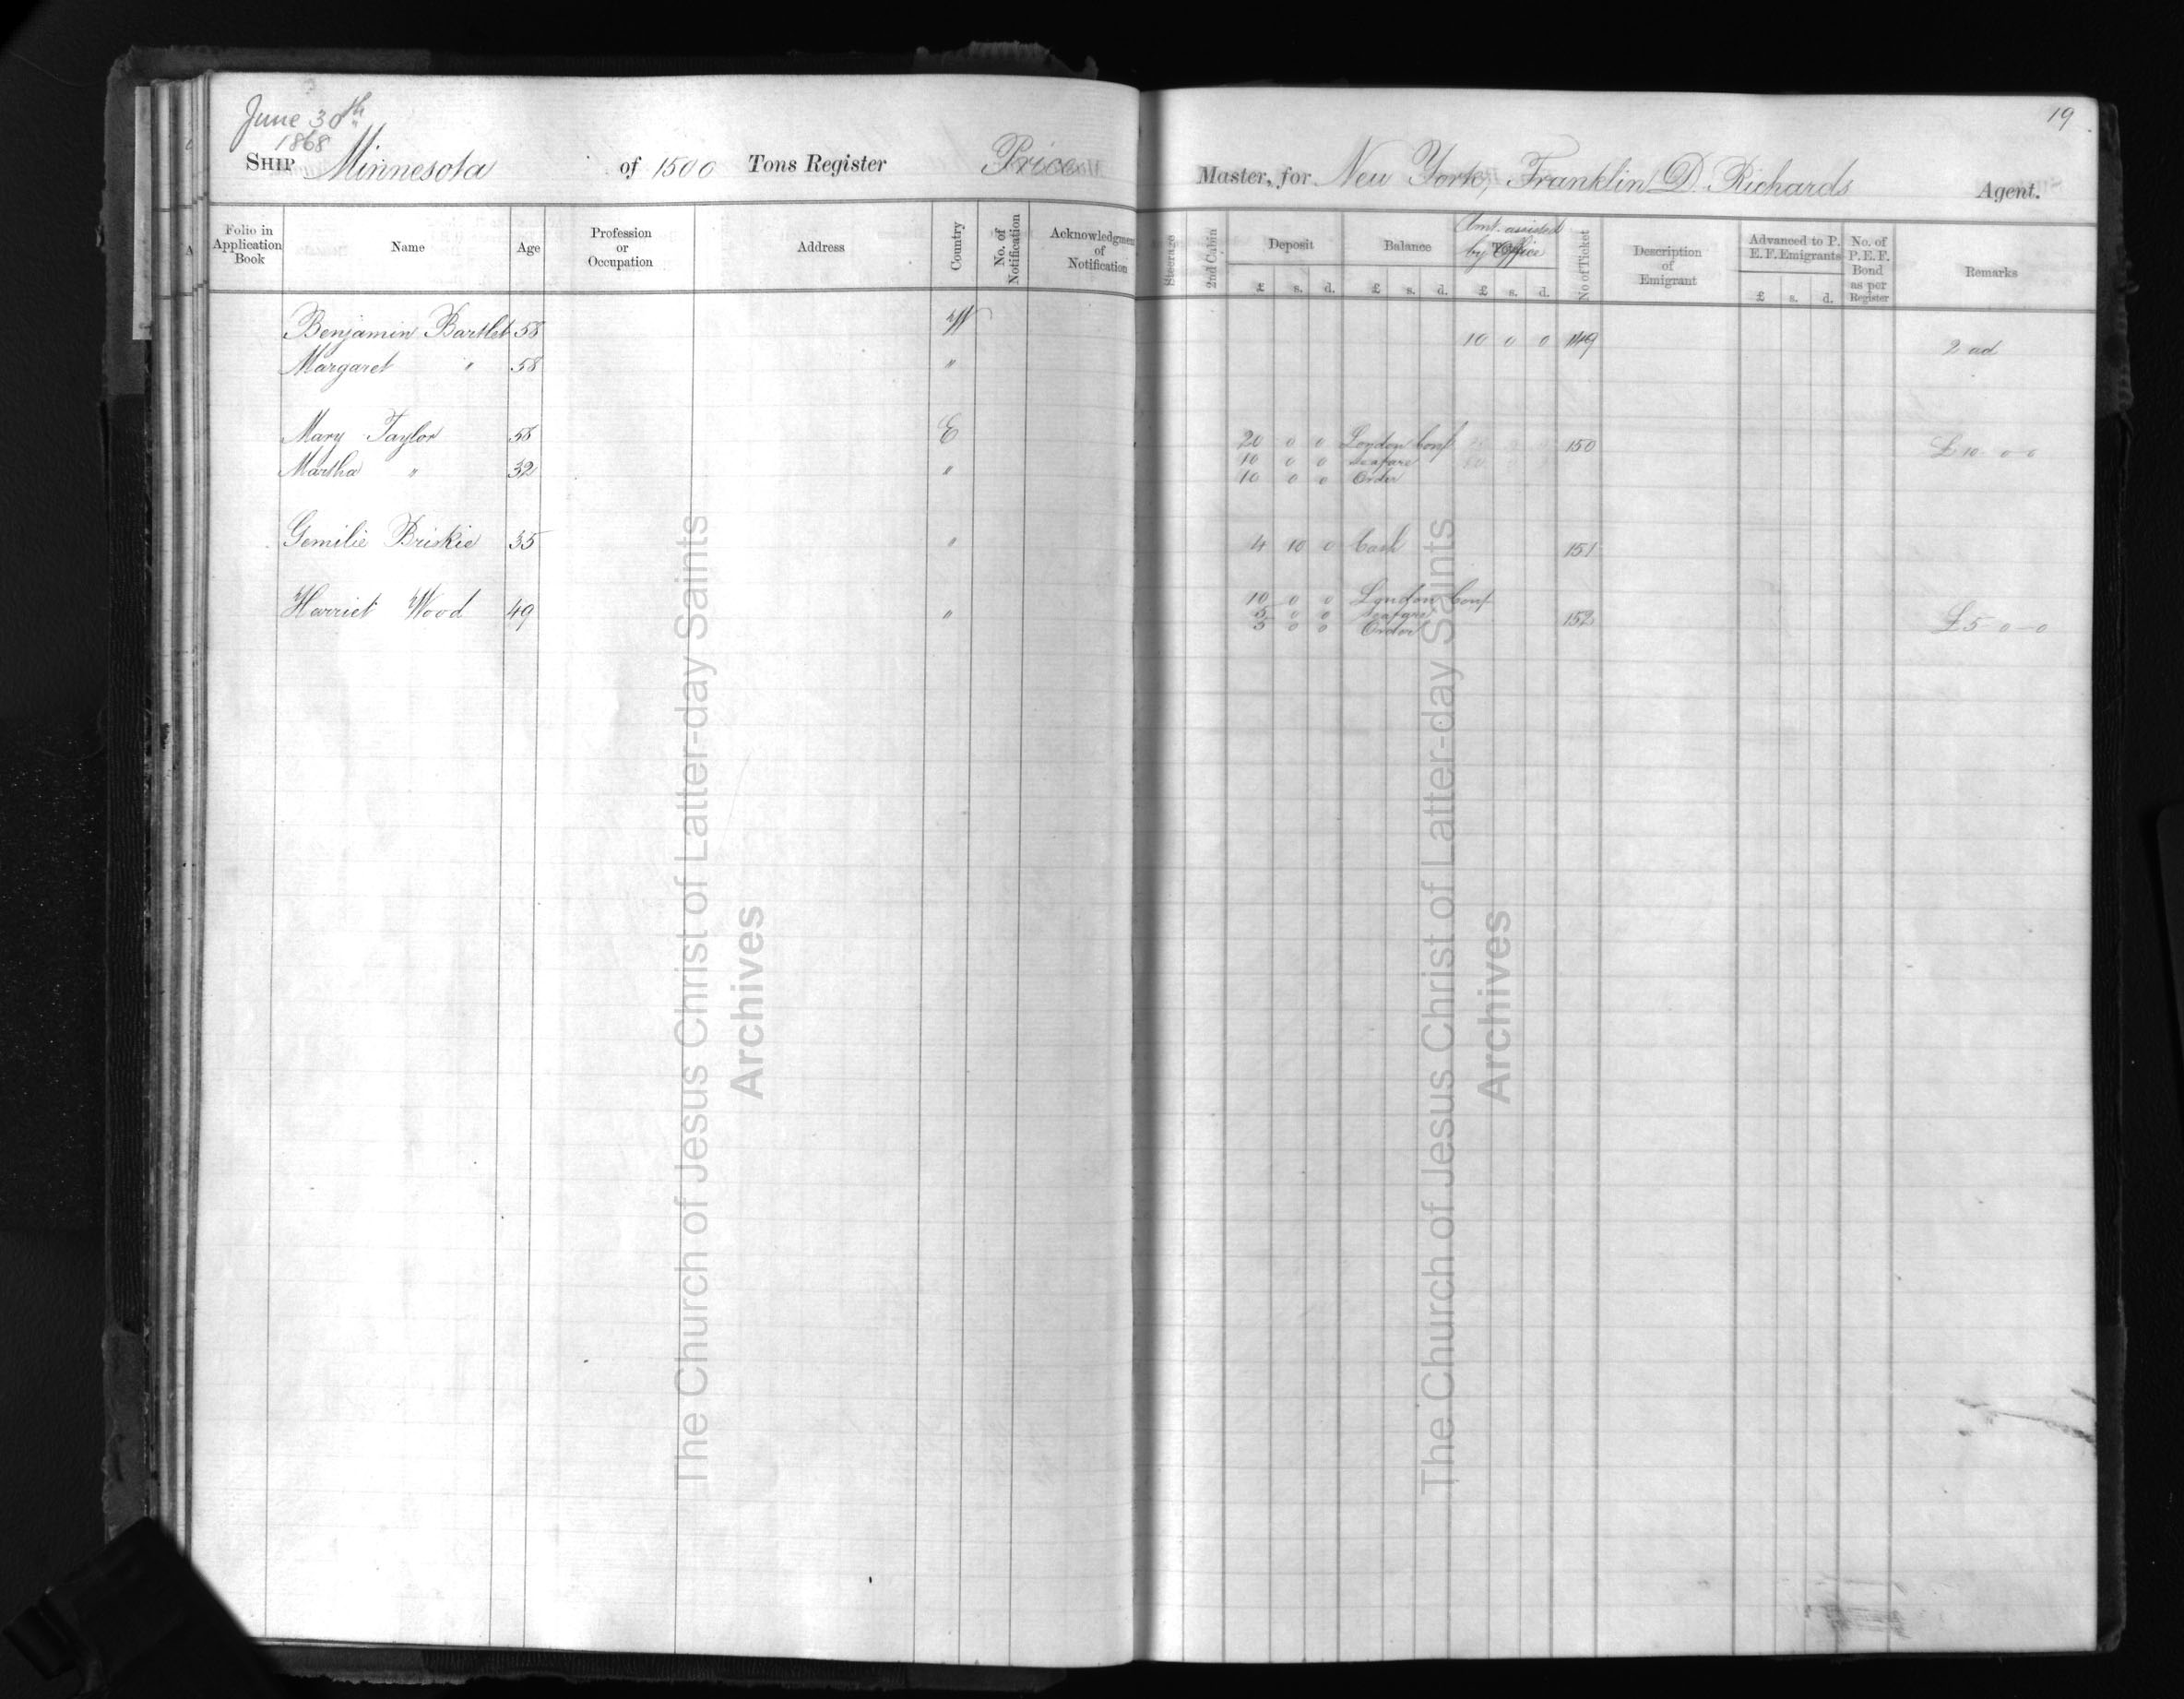 June 30th
1868
SHIP Minnesota of 1500 Tons Register Price
Folio in Application Book
Name
Age
Profession or Occupation
Address
Country
No. of Notification
Acknowledgment of Notification
Benjamin Bartlet 58 W
Margaret " 58 "
Mary Taylor 58 E
Martha " 32 "
Gemilie Briskie 35 "
Harriet Wood 49 "
The Church of Jesus Christ of Latter-day Saints
Archives
19
Master, for New York, Franklin D. Richards Agent.
Steerage
2nd Cabin
Deposit £ s. d.
Balance £ s. d.
Amt. assisted by Office
Total £ s. d.
No of Ticket
Description of Emigrant
Advanced to P. E. F. Emigrants £ s. d.
No. of P. E. F. Bond as per Register
Remarks
10 0 0 149 2 ad
20 0 0 London Conf 150 £10 0 0
10 0 0
10 0 0 Order
4 10 0 Cash 151
10 0 0 London Conf
5 0 0 152
5 0 0 Order £5 0 0
The Church of Jesus Christ of Latter-day Saints
Archives